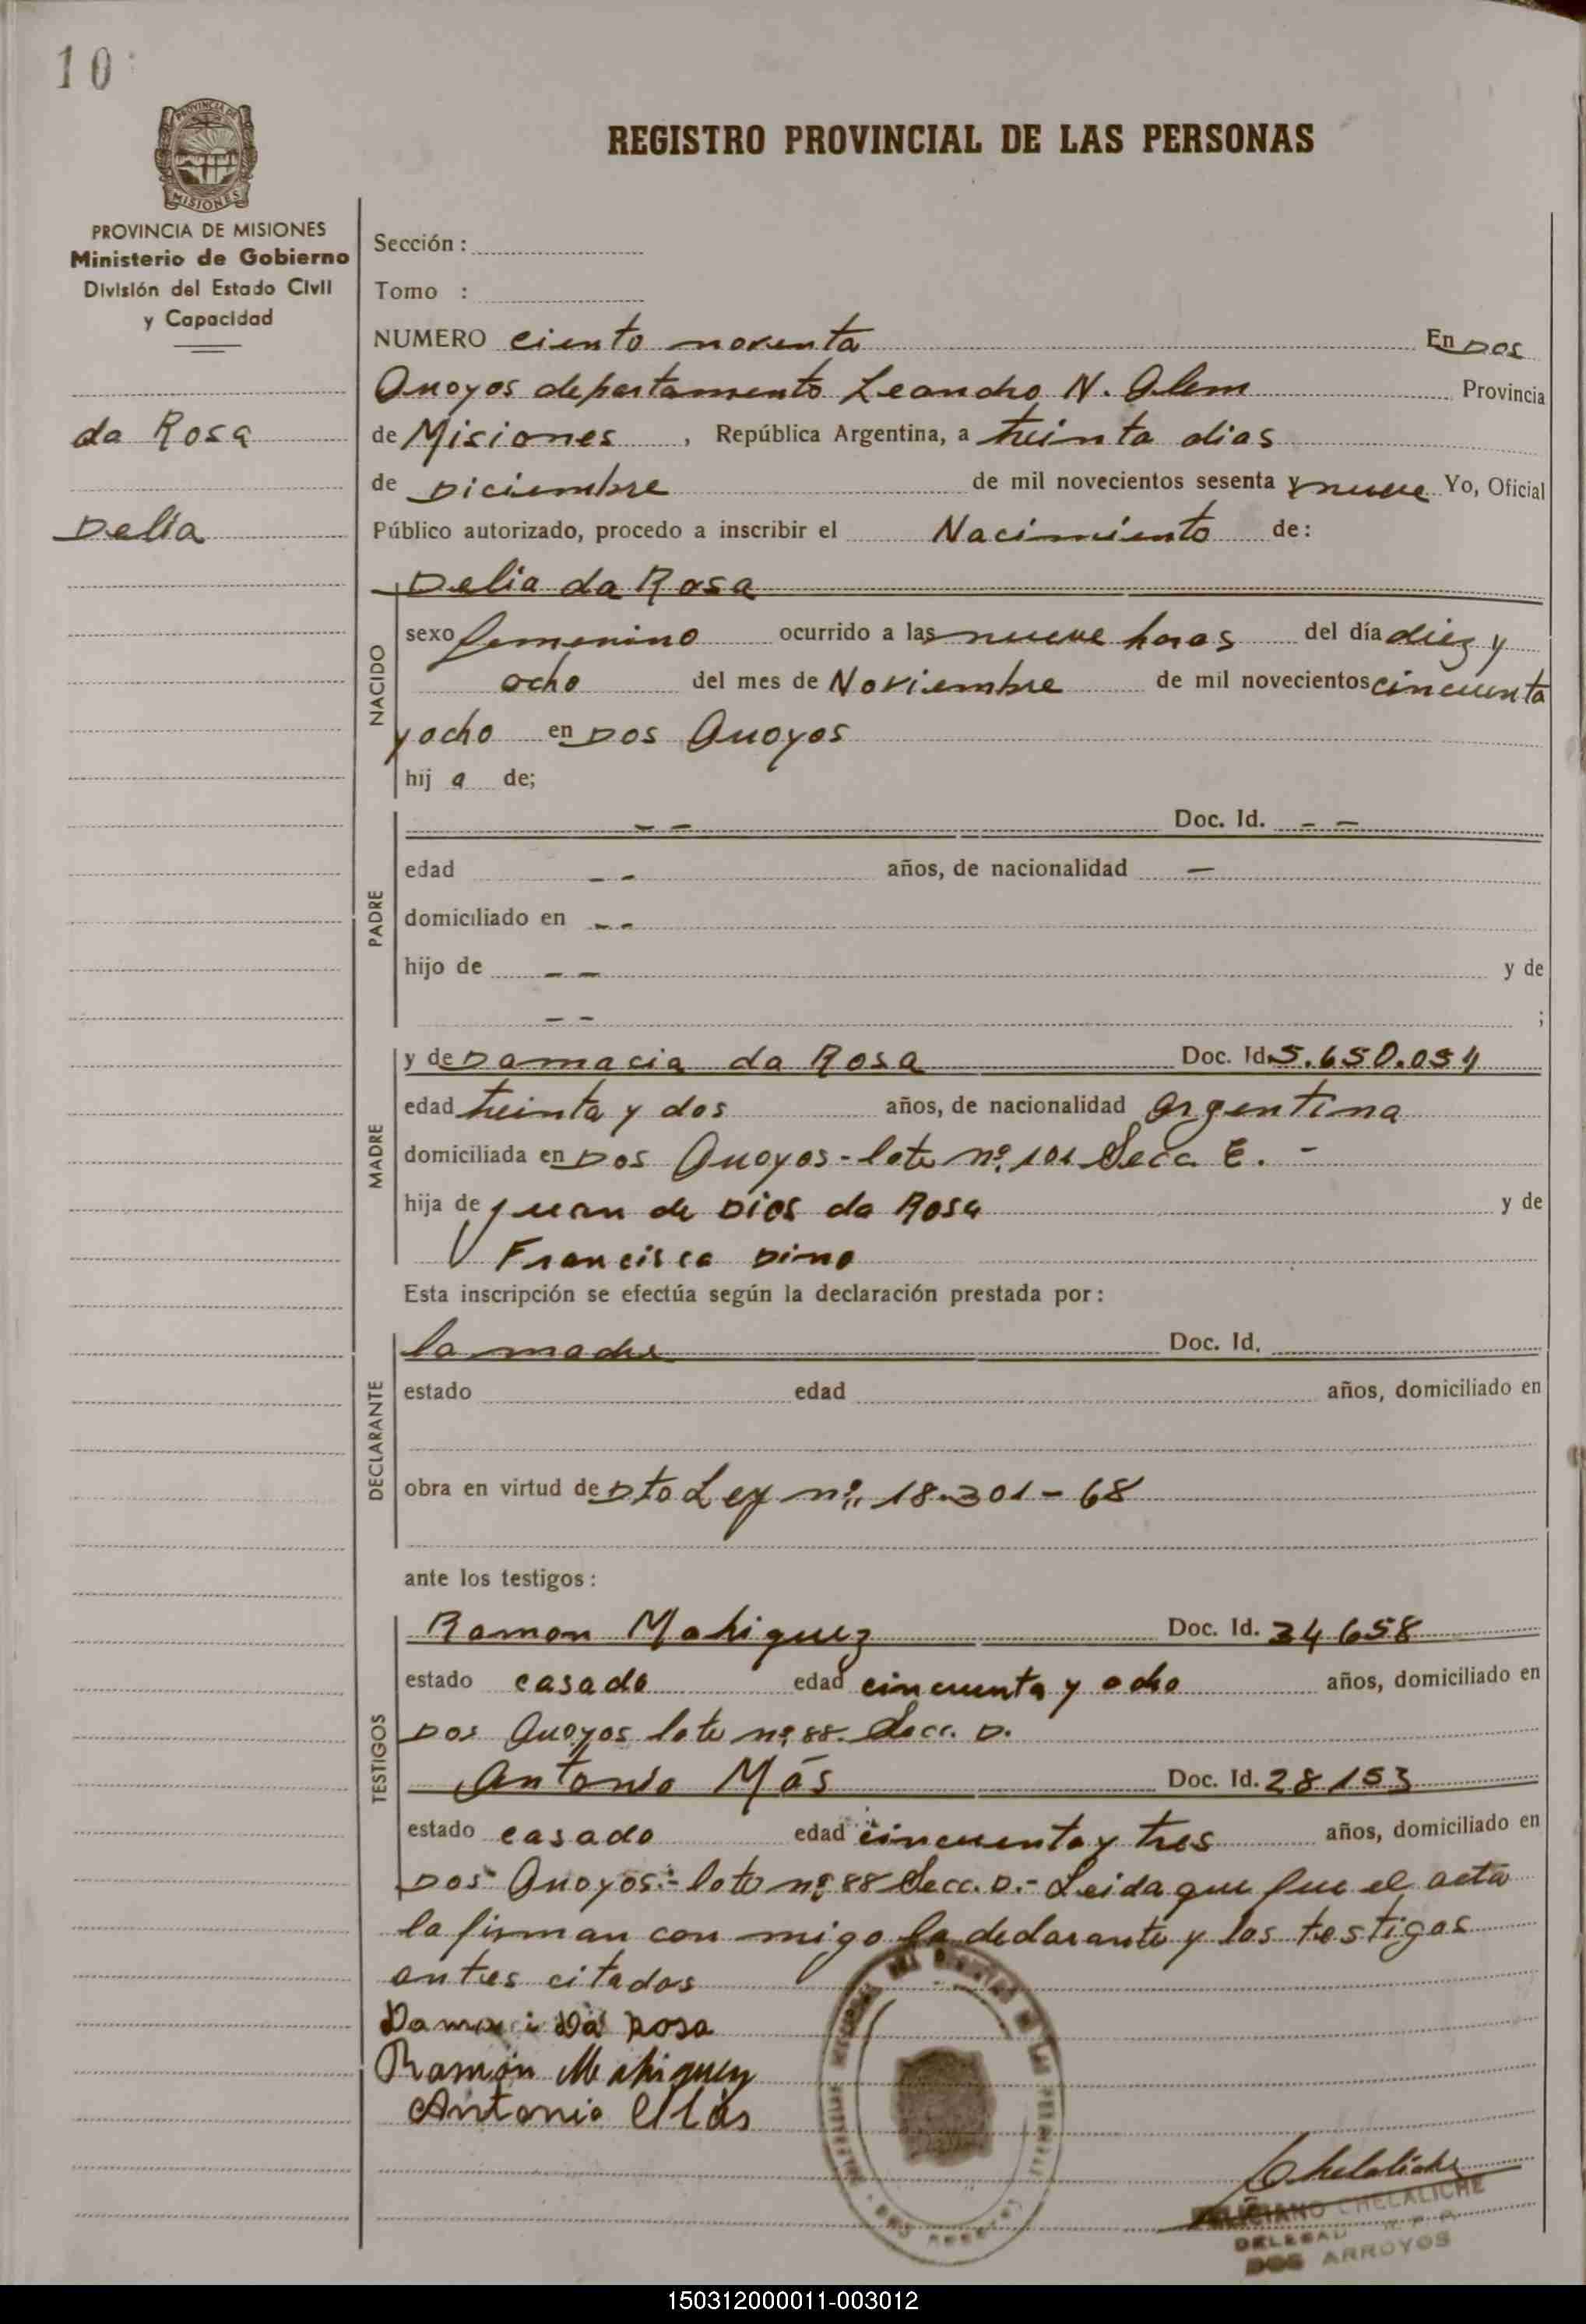 10
PROVINCIA DE MISIONES
PROVINCIA DE MISIONES
Ministerio de Gobierno
División del Estado Civil
y Capacidad
da Rosa
Delia
REGISTRO PROVINCIAL DE LAS PERSONAS
Sección :
Tomo :
NUMERO ciento noventa En Dos
Arroyos departamento Leandro N. Alem Provincia
de Misiones , República Argentina, a treinta dias
de Diciembre de mil novecientos sesenta y nueve Yo, Oficial
Público autorizado, procedo a inscribir el Nacimiento de:
Delia da Rosa
NACIDO
sexo femenino ocurrido a las nueve horas del día diez y
ocho del mes de Noviembre de mil novecientos cincuenta
y ocho en Dos Arroyos
hij a de;
PADRE
- - Doc. Id. - -
edad - - años, de nacionalidad -
domiciliado en - -
hijo de - - y de
- - ;
MADRE
y de Damacia da Rosa Doc. Id. 5.650.054
edad treinta y dos años, de nacionalidad argentina
domiciliada en Dos Arroyos - lote nº 101 Secc. E. -
hija de Juan de Dios da Rosa y de
Francisca Dino
Esta inscripción se efectúa según la declaración prestada por :
DECLARANTE
la madre Doc. Id.
estado edad años, domiciliado en
obra en virtud de Dto Ley nº 18.301 - 68
ante los testigos :
TESTIGOS
Ramon Mahiquez Doc. Id. 34658
estado casado edad cincuenta y ocho años, domiciliado en
Dos Arroyos lote nº 88. Secc. D.
Antonio Más Doc. Id. 28153
estado casado edad cincuenta y tres años, domiciliado en
Dos Arroyos.- lote nº 88 Secc. D.- Leida que fue el acta
la firman con migo la declarante y los testigos
antes citados
Da Rosa
Ramón Mahiquez
Antonio Más
Chelaliche
FELICIANO CHELALICHE
DELEGADO R. P. P.
DOS ARROYOS
150312000011-003012